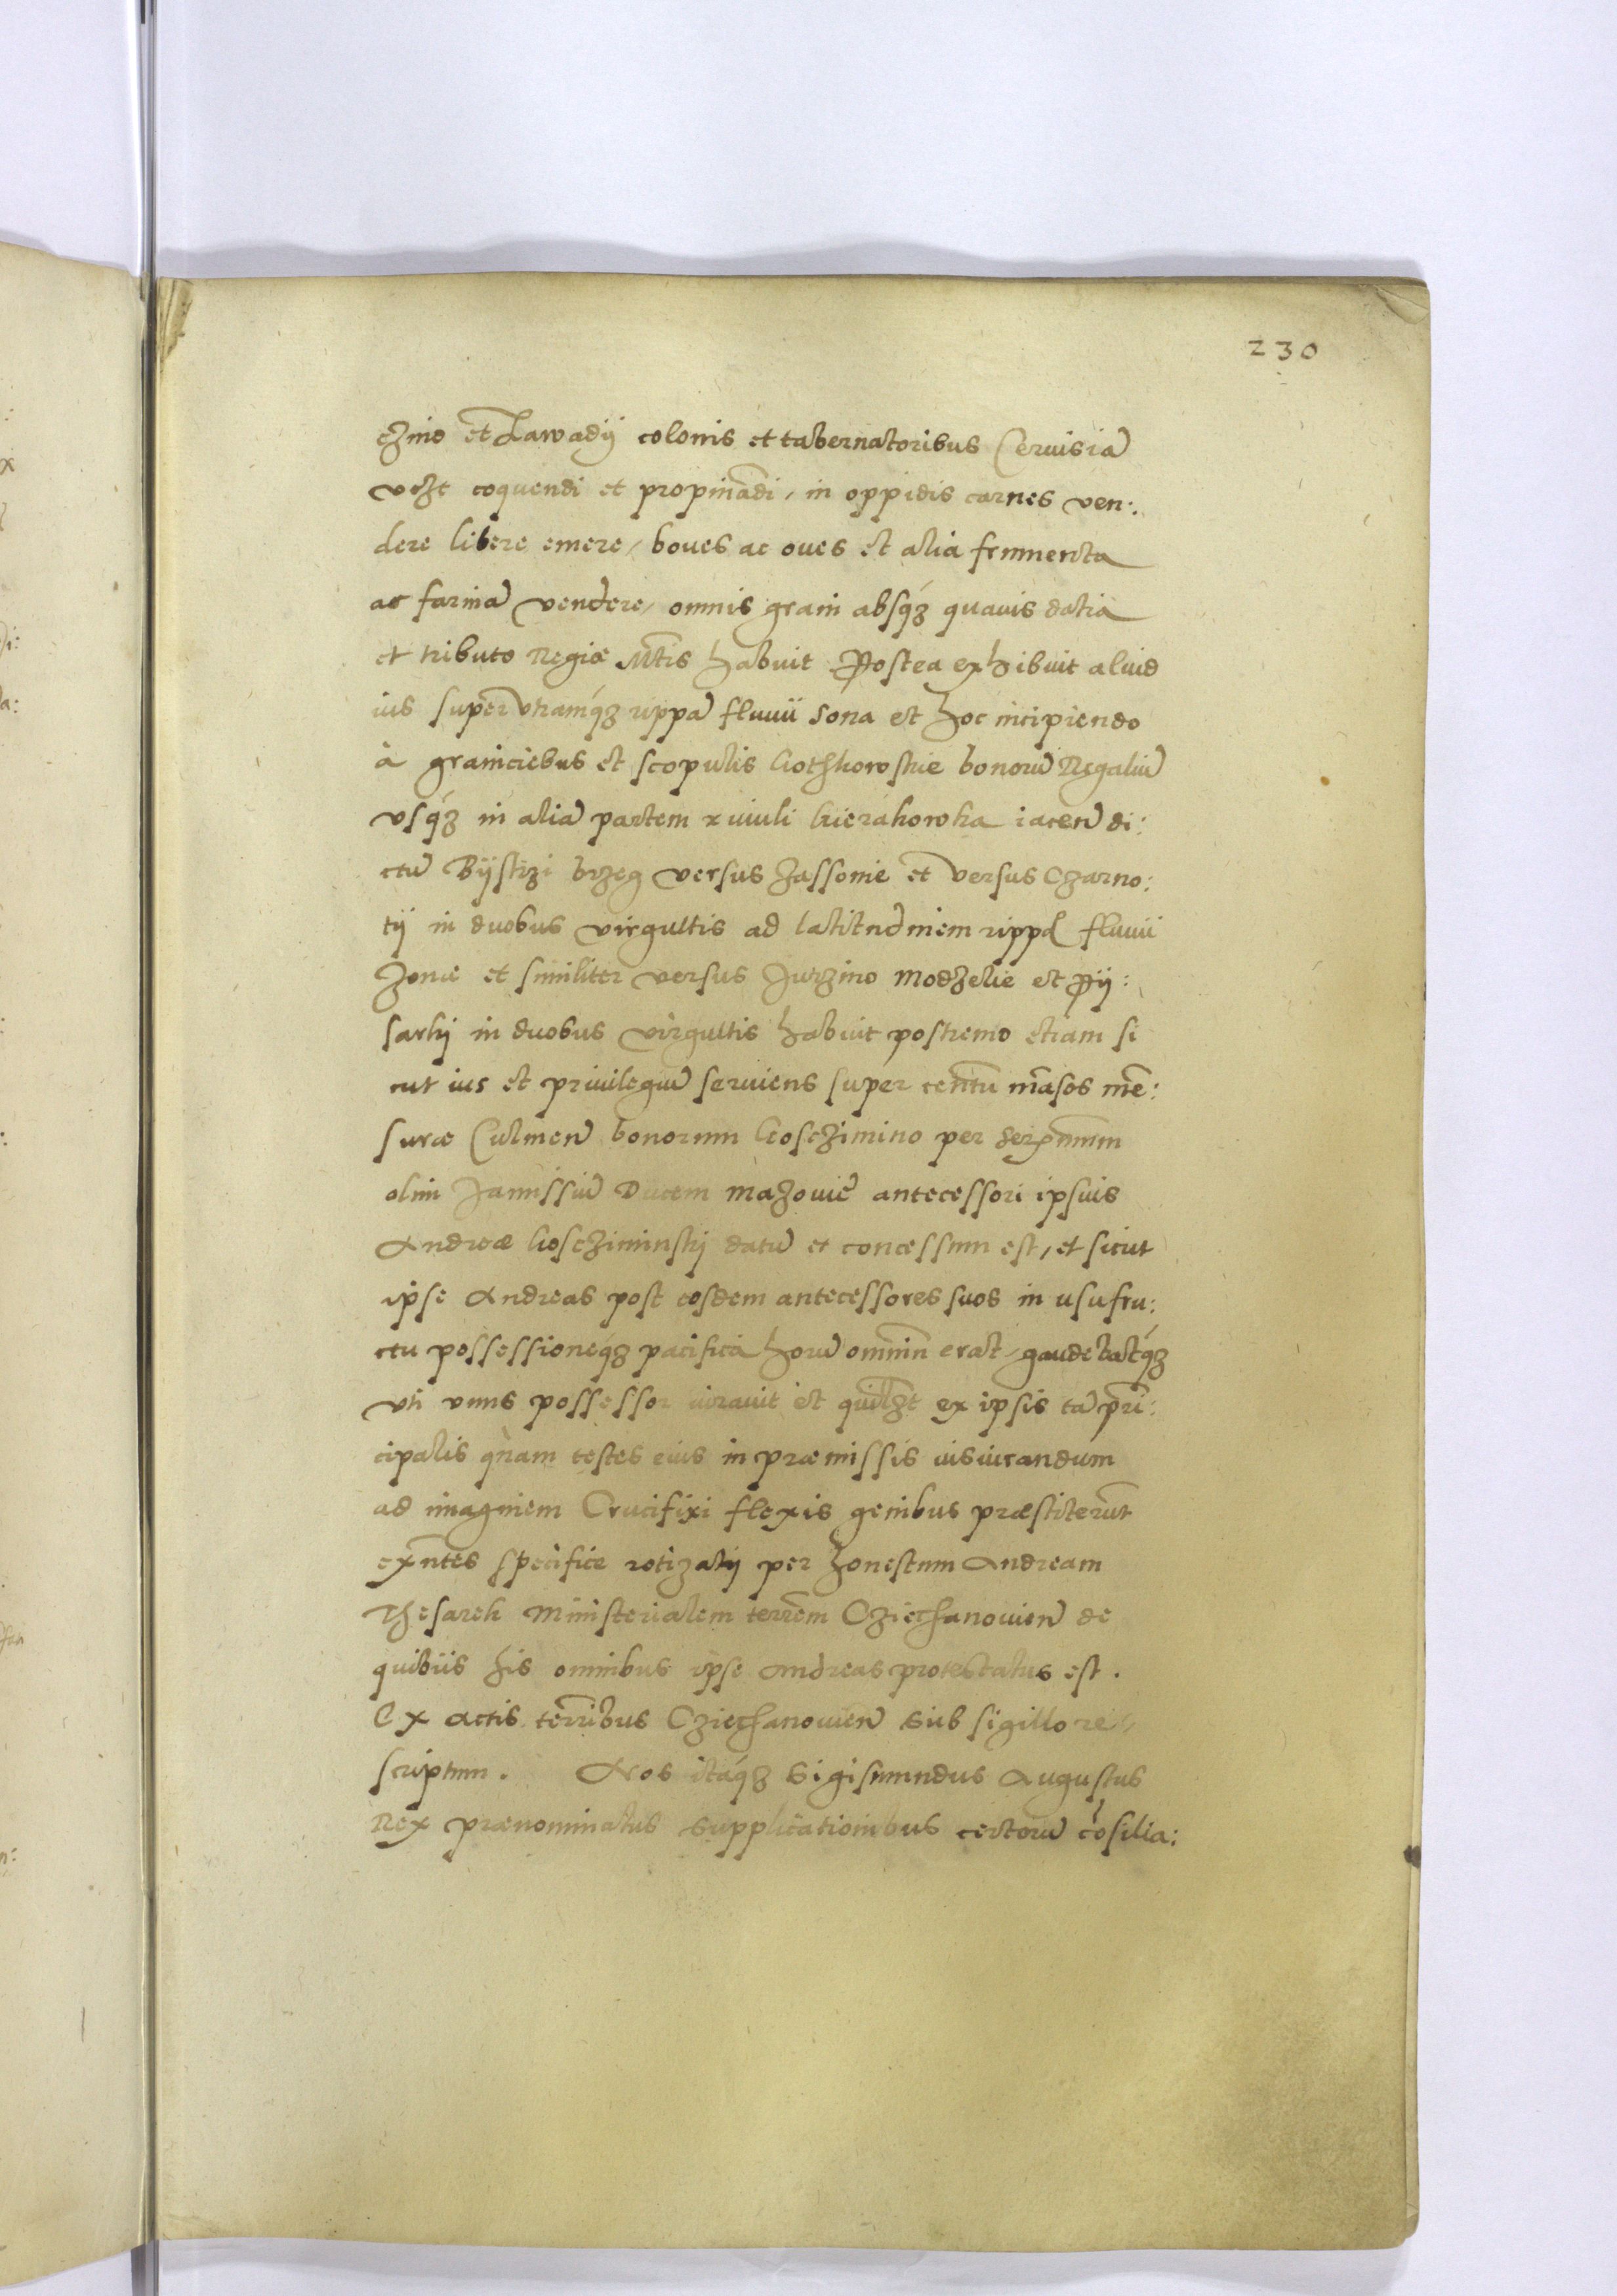 230
czino et Lawadÿ colonis et tabernatoribus Cervisiã
vczt coquendi et propinãdi, in oppidis carnes ven:
dere libere emere, boves ac oves et alia frumenta
ac farinã vendere, omnis grani absq́ʒ quavis datia
et tributo Regiæ Mtis habuit Postea exhibuit aliud
ius super vtramq́ʒ rippã fluvii Sona et hoc incipiendo
à graniciebus et scopulis Gothkowskie bonorũ Regaliũ
vsq́ʒ in aliã partem rivuli kierzkowka iaceñ di:
ctũ Bÿstrzi brzeg versus Jassonie et versus Czarno:
tÿ in duobus virgultis ad latitudinem rippæ fluvii
Zonæ et similiter versus Jurzino Modzelie et Pÿ:
sarkj in duobus virgultis habuit postremo etiam si
cut ius et privilegiũ serviens super centũ mãsos mẽ:
suræ Culmeñ bonorum Gosczimino per serenissimum
olim Janussiũ Ducem Mazoviẽ antecessori ipsius
Andreæ Gosczimin̄skj datũ et concessum est, et sicut
ipse Andreas post eosdem antecessores suos in usufru:
ctu possessioneq́ʒ pacifica horũ omniũ erat, gaudebatq́ʒ
vti vnus possessor iuravit et quilꝫt ex ipsis tã pri:
cipalis quàm testes eius in præmissis iusiurandum
ad imaginem Crucifixi flexis genibus præstiterũt
exñtes specifice rotizatÿ per honestum Andream
Thesarek Ministerialem terrem Cziechanovieñ de
quibus his omnibus ipse Andreas protestatus est.
Ex actis terribus Cziechanovieñ sub sigillo re,
scriptum. Nos itáqʒ Sigismundus Augustus
Rex prænominatus supplicationibus certorũ cõsilia: